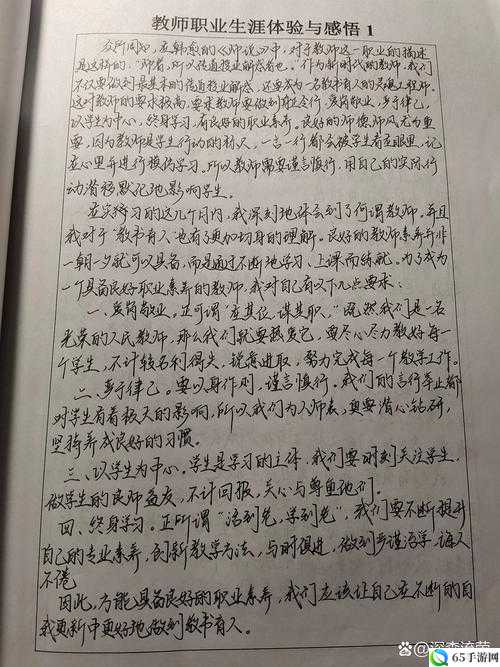 教师职业生涯体验与感悟 1
众所周知，在韩愈的《师说》中，对于教师这一职业的描述
是这样的，“师者，所以传道授业解惑者也。”作为新时代的教师，我们
不仅要做到最基本的传道授业解惑，还要成为一名教书育人的灵魂工程师。
这对教师的要求极高，要求教师要做到有令行，爱岗敬业，严于律己，
以学生为中心，终身学习，有良好的职业素养。良好的师德师风尤为重
要，因为教师是学生行动的标尺，一言一行都会被学生看在眼里，记
在心里并进行模仿学习。所以教师需要谨言慎行，用自己的实际行
动潜移默化地影响学生。
在实习的这几个月内，我深刻地体会到了何谓教师，并且
我对于“教书育人”也有了更加切身的理解。良好的教师素养并非
一朝一夕就可以具备，而是通过不断地学习、上课而练就。为了成为
一个具备良好职业素养的教师，我对自己有以下几点要求：
一、爱岗敬业。正可谓“在其位，谋其职，”既然我们是一名
光荣的人民教师，那么我们就要热爱它，要尽心尽力教好每一
个学生，不计较名利得失，锐意进取，努力完成每一个教学工作。
二、严于律己。要以身作则，谨言慎行。我们的言行举止都
对学生有着极大的影响，所以我们为人师表，更要潜心钻研，
坚持养成良好的习惯。
三、以学生为中心。学生是学习的主体，我们要时刻关注学生，
做学生的良师益友，不计回报，关心与尊重他们。
四、终身学习。正所谓“活到老，学到老”，我们要不断提升
自己的专业素养，创新教学方法，与时俱进，做到严谨治学，诲人
不倦
因此，方能具备良好的职业素养，我们应该让自己在不断的自
我更新中更好地做到教书育人。
65手游网